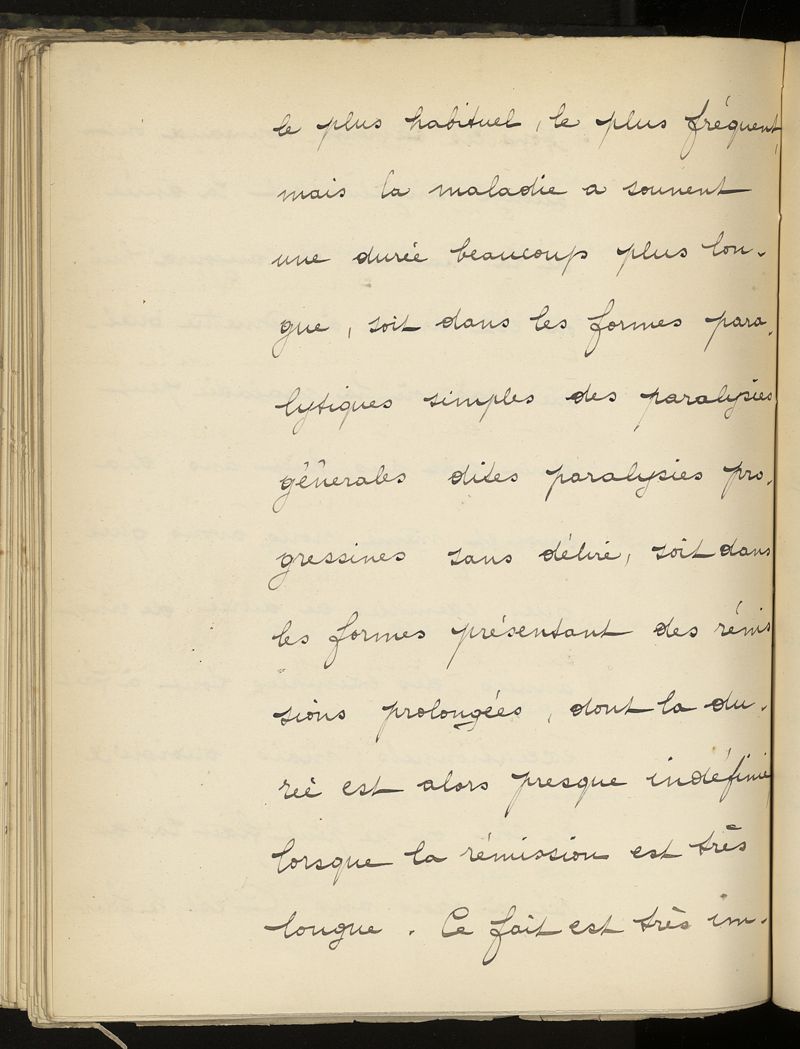 le plus habituel, le plus fréquent,
mais la maladie a souvent
une durée beaucoup plus lon-
gue, soit dans les formes para-
lytiques simples des paralysies
générales dites paralysies pro-
gressives sans délire, soit dans
les formes présentant des rémis
sions prolongées, dont la du-
rée est alors presque indéfinie
lorsque la rémission est très
longue. Ce fait est très im-